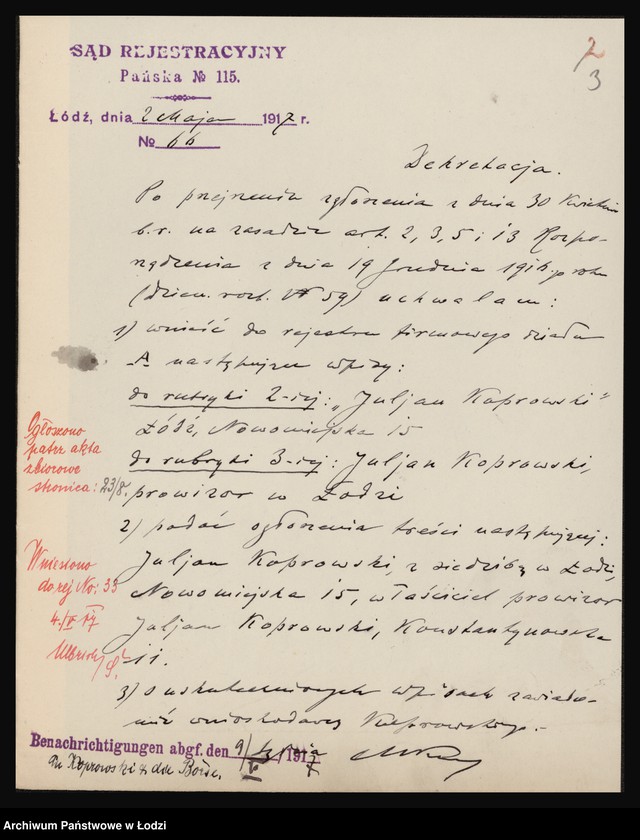 SĄD REJESTRACYJNY
Pańska № 115.
Łódź, dnia 2 Maja 1917 r.
№ 66
2
3
Dekretacja.
Po przejrzeniu zgłoszenia z dnia 30 Kwietnia
b.r. na zasadzie art. 2, 3, 5 i 13 Rozpo-
rządzenia z dnia 19 Grudnia 1916 roku
(dzien. rozp. № 59) uchwalam:
1) wnieść do rejestru firmowego działu
A następujące wpisy:
do rubryki 2-iej: „Juljan Koprowski"
Łódź, Nowomiejska 15
do rubryki 3-iej: Juljan Koprowski,
prowizor w Łodzi
2) podać ogłoszenia treści następującej:
Juljan Koprowski, z siedzibą w Łodzi,
Nowomiejska 15, właściciel prowizor
Juljan Koprowski, Konstantynowska
11.
3) o uskutecznionych wpisach zawiado-
mić wnioskodawcę Koprowskiego.-
Ogłoszono
patrz akta
zbiorowe
stronica: 23/8.
Wniesiono
do rej No: 33
4/V 17
Benachrichtigungen abgf. den 9/V 1917
Koprowski